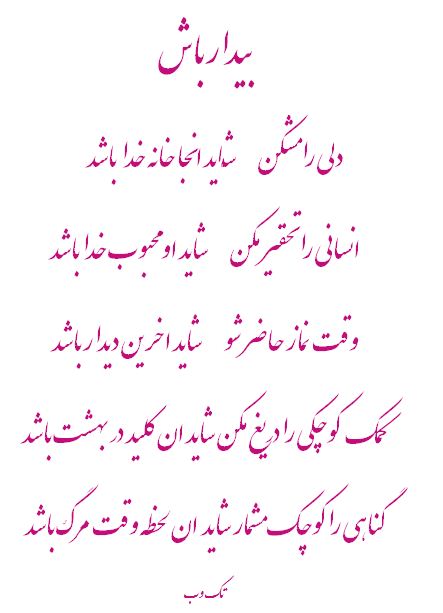 بیدار باش
دلی را مشکن شاید انجا خانه خدا باشد
انسانی را تحقیر مکن شاید او محبوب خدا باشد
وقت نماز حاضر شو شاید اخرین دیدار باشد
کمک کوچکی را دریغ مکن شاید ان کلید در بهشت باشد
گناهی را کوچک مشمار شاید ان لحظه وقت مرگ باشد
تک وب